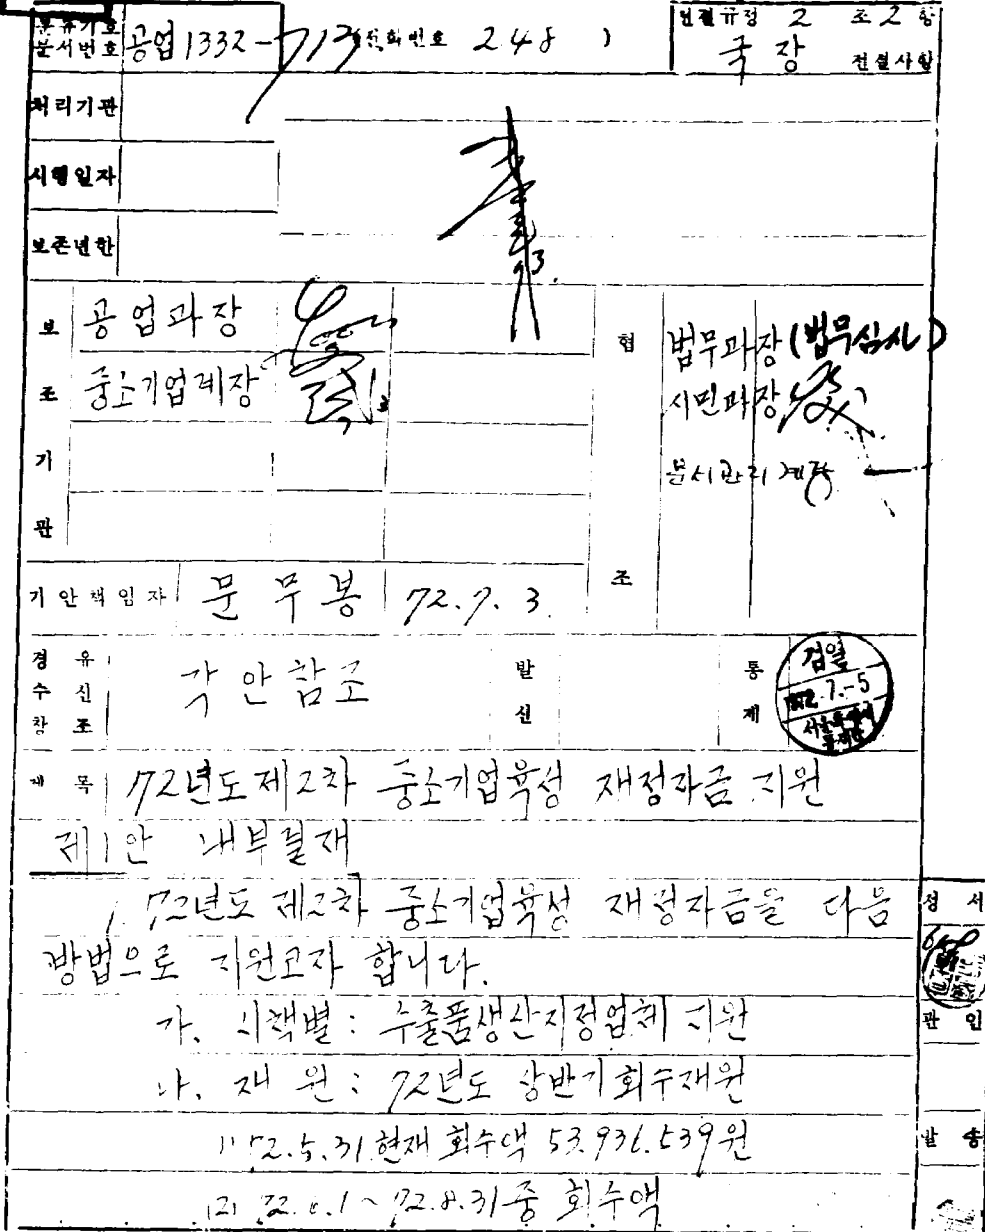 분류기호
문서번호 공업1332-713 (전화번호 248 )
전결규정 2 조 2 항
국장 전결사항
처리기관
시행일자
보존년한
보조기관
공업과장
중소기업계장
협조
법무과장 (법무심사)
시민과장
문서관리계장
기안책임자 문무봉 72.7.3.
경유
수신 각안참조
참조
발신
통제
검열
1972.7.-5
서울특별시
제목 72년도 제2차 중소기업육성 재정자금 지원
제1안 내부결재
1. 72년도 제2차 중소기업육성 재정자금을 다음
방법으로 지원코자 합니다.
가. 시책별 : 수출품생산지정업체 지원
나. 재원 : 72년도 상반기회수재원
(1) 72.5.31 현재 회수액 53,936,539원
(2) 72.6.1 ~ 72.8.31 중 회수액
정서
관인
발송